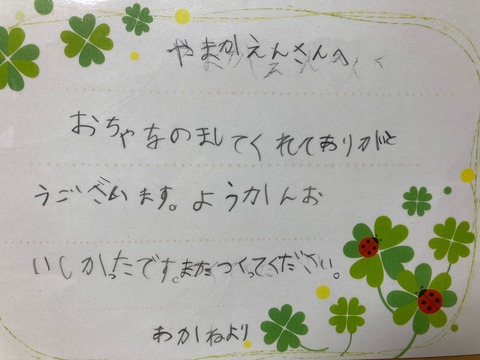 やまかえんさんへ
おちゃなのましてくれてありがと
うございます。ようかんお
いしかったです。またつくってください。
わかねより